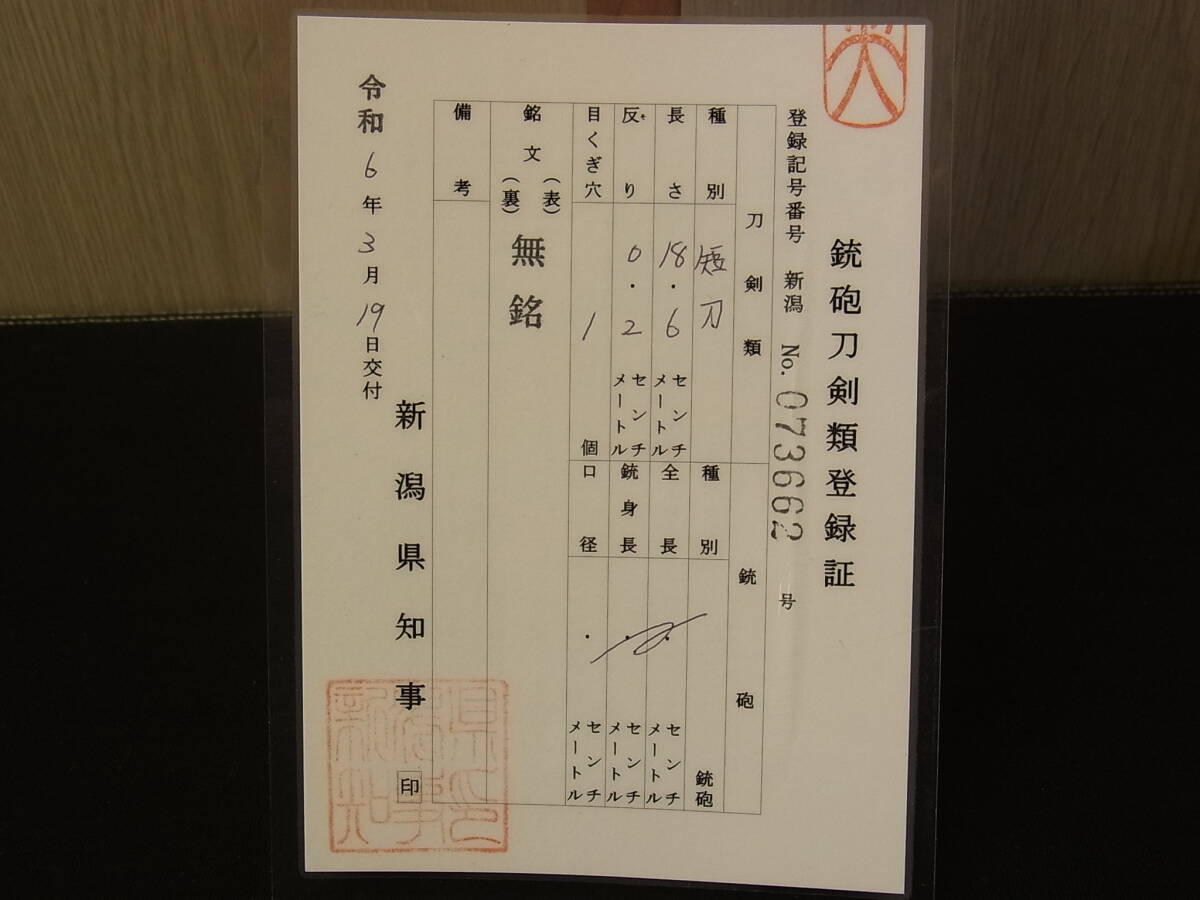 銃砲刀剣類登録証
登録記号番号 新潟 No. 073662 号
刀剣類
銃砲
種別 短刀
種別 銃砲
長さ 18.6 センチメートル
全長 . センチメートル
反り 0.2 センチメートル
銃身長 . センチメートル
目くぎ穴 1 個
口径 . センチメートル
銘文 (表) (裏) 無銘
備考
令和6年3月19日交付
新潟県知事 印
新潟県知事印